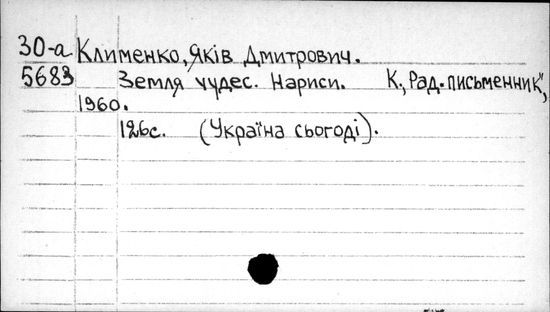 30-а Клименко, Яків Дмитрович.
5683 Земля чудес. Нариси. К., „Рад. письменник",
1960.
126с. (Україна сьогодні).